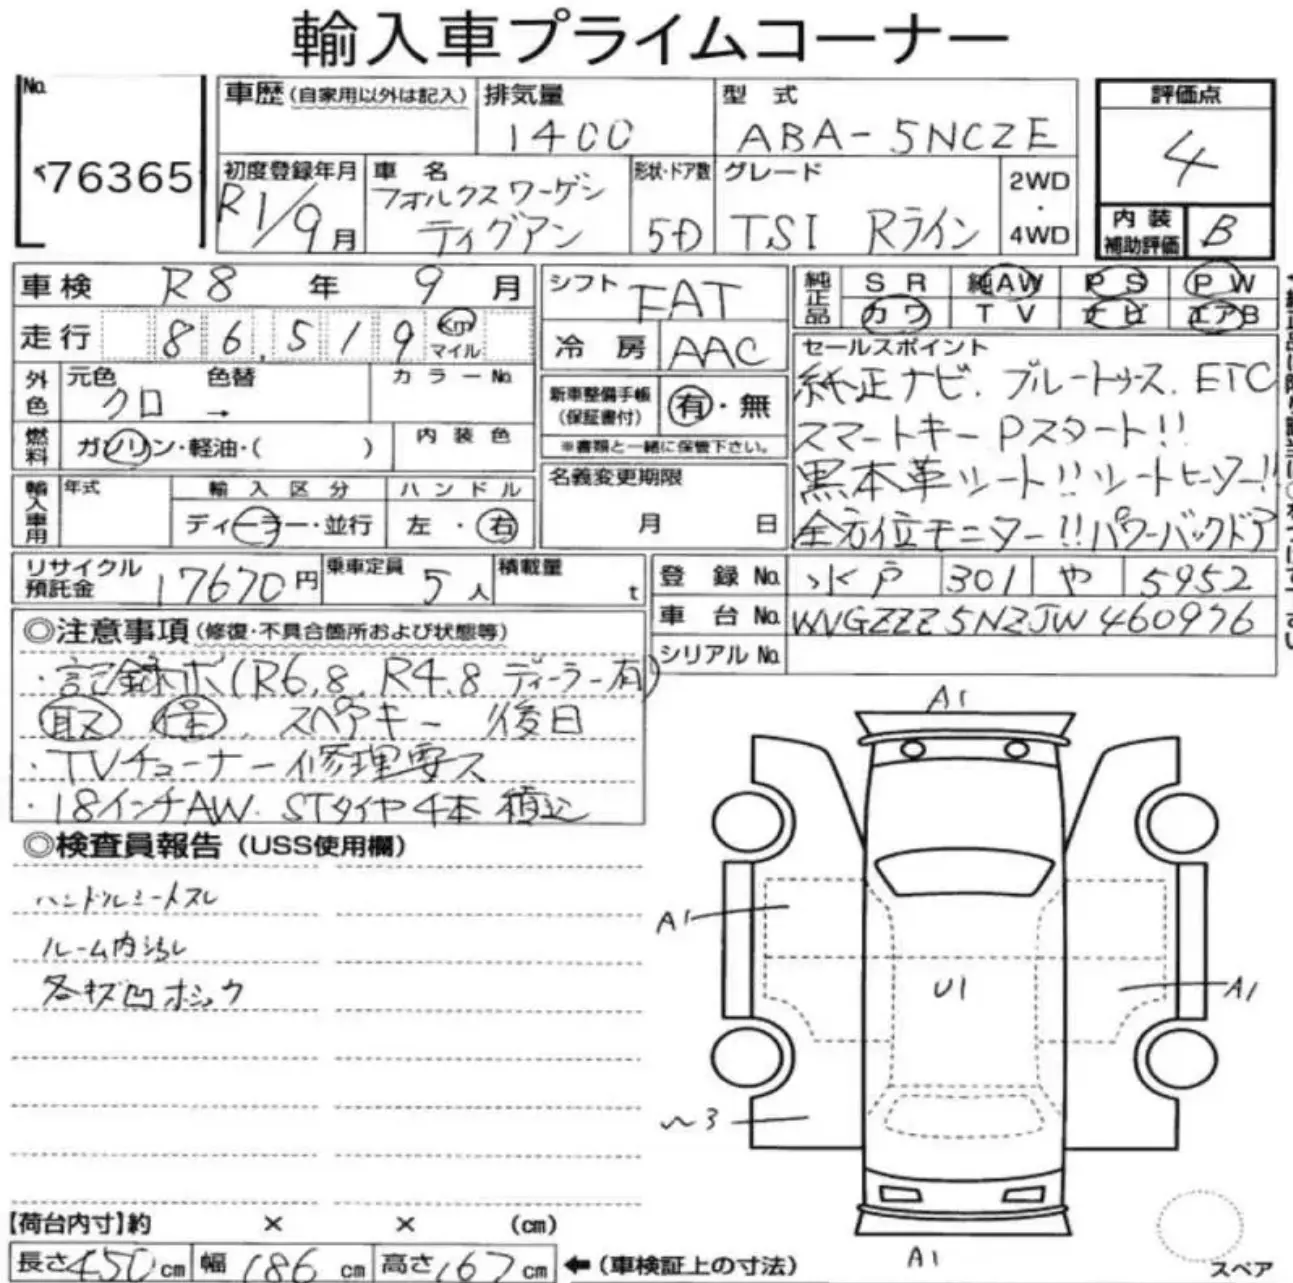 輸入車プライムコーナー
No. 76365
車歴(自家用以外は記入) 排気量 1400 型式 ABA-5NCZE 評価点 4
初度登録年月 R1/9月 車名 フォルクスワーゲン ティグアン 形状・ドア数 5D グレード TSI Rライン 2WD・4WD 内装補助評価 B
車検 R8年 9月 シフト FAT 純正品 SR 純AW PS PW
走行 86,519 Km マイル 冷房 AAC カワ TV ナビ エアB
外色 元色 クロ 色替 → カラーNo.
燃料 ガソリン・軽油・( ) 内装色
新車整備手帳(保証書付) 有・無
※書類と一緒に保管下さい。
セールスポイント
純正ナビ、ブルートゥース、ETC
スマートキー Pスタート!!
黒本革シート!!シートヒーター!!
全方位モニター!!パワーバックドア
輸入車用 年式 輸入区分 ディーラー・並行 ハンドル 左・右
名義変更期限 月 日
リサイクル預託金 17670円 乗車定員 5人 積載量 t
登録No. 水戸 301 や 5952
車台No. WVGZZZ5NZJW460976
シリアルNo.
◎注意事項(修復・不具合箇所および状態等)
・記録ボ(R6.8、R4.8 ディーラー有)
取 スペアキー 後日
・TVチューナー修理要ス
・18インチAW. STタイヤ4本積込
◎検査員報告(USS使用欄)
ハンドルシートスレ
ルーム内汚れ
各キズ凹ホシック
A1
A1
U1
A1
〜3
A1
スペア
【荷台内寸】約 × × (cm)
長さ450cm 幅186cm 高さ167cm ←(車検証上の寸法)